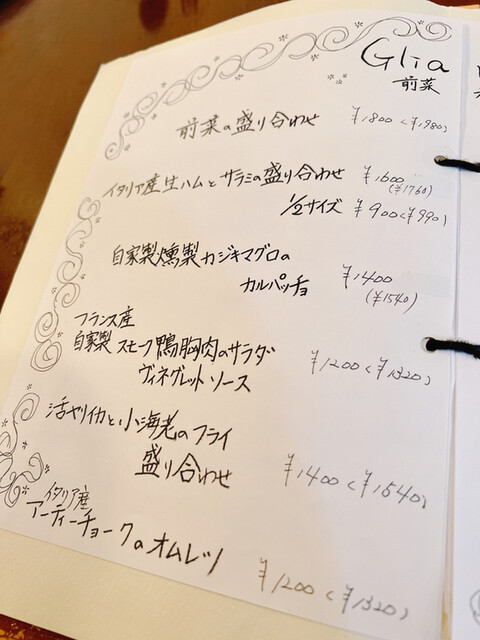 Glia
前菜
前菜の盛り合わせ ¥1800<¥1980>
イタリア産生ハムとサラミの盛り合わせ ¥1600
(¥1760)
1/2サイズ ¥900<¥990>
自家製燻製カジキマグロの
カルパッチョ ¥1400
(¥1540)
フランス産
自家製スモーク鴨胸肉のサラダ
ヴィネグレットソース ¥1200<¥1320>
活ヤリイカと小海老のフライ
盛り合わせ ¥1400<¥1540>
イタリア産
アーティーチョークのオムレツ ¥1200<¥1320>